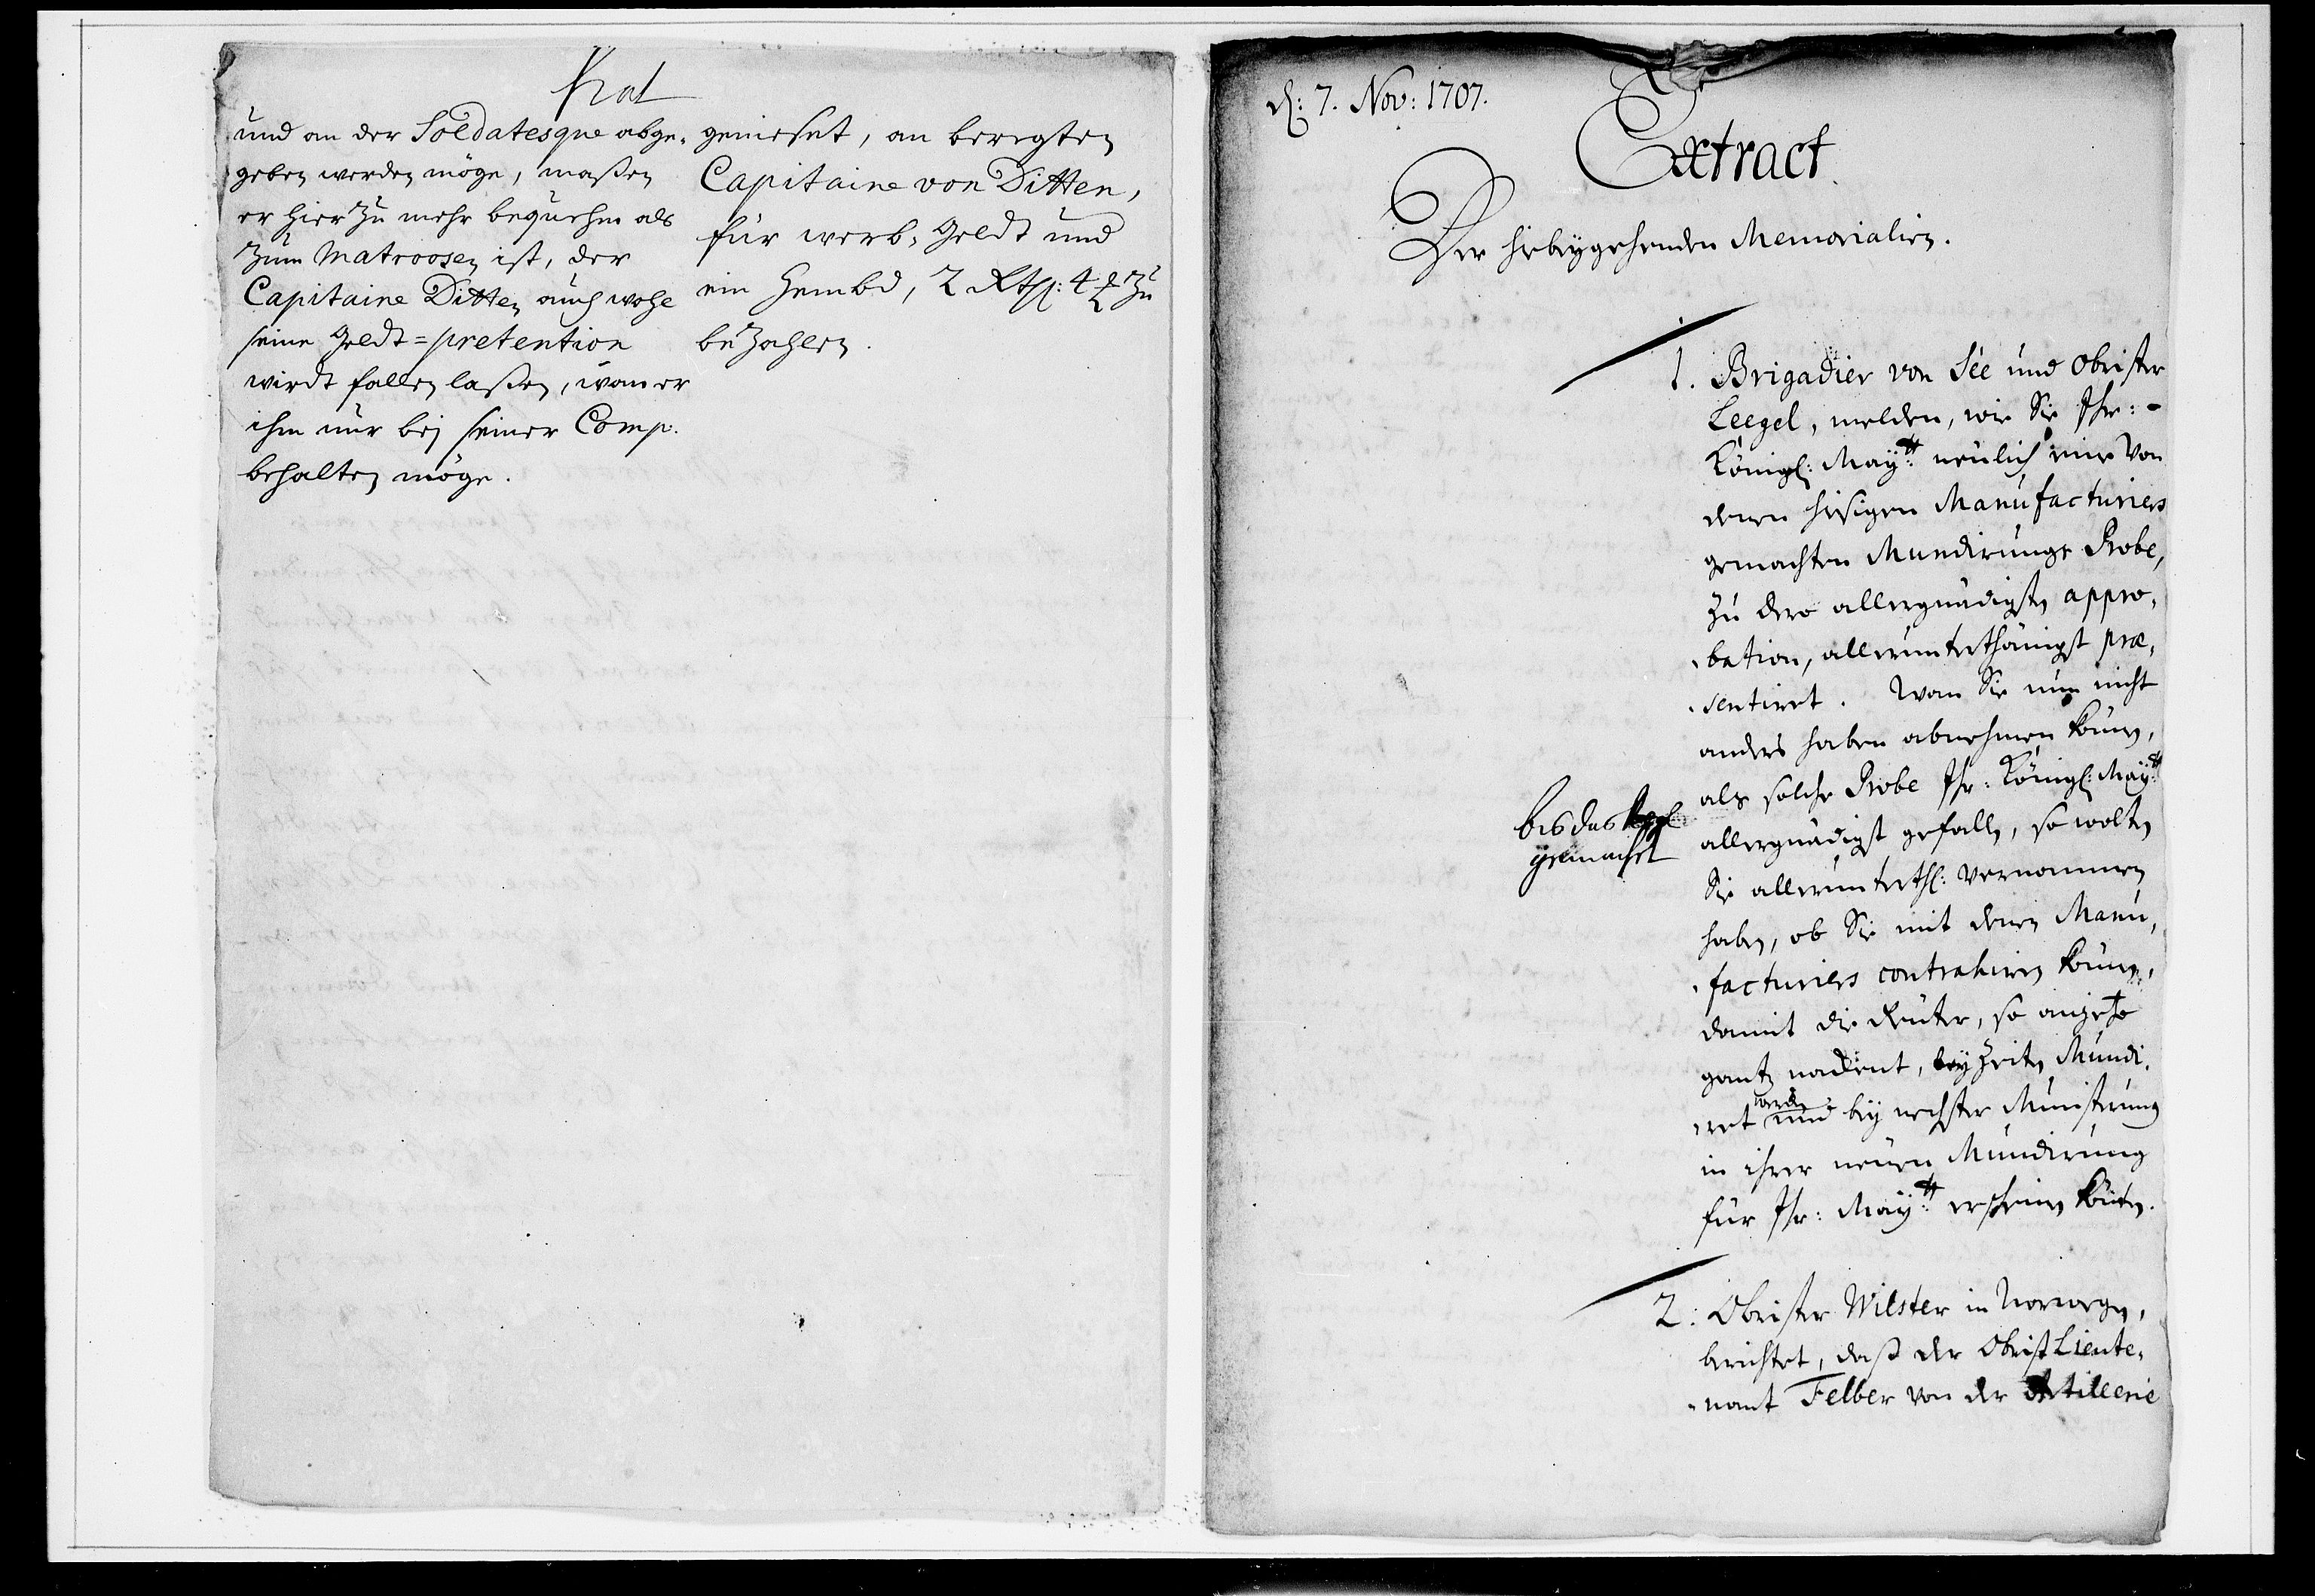 und an der Soldatesque abge-
geben werden möge, maßen
er hierzu mehr bequehm als
zum Matroosen ist, der
Capitaine Ditten auch wohl
seine Geldt=pretention
wirdt fallen laßen, wan er
ihm nur bej seiner Comp:
behalten möge.
genießet, an beregten
Capitaine von Ditten,
für werb-Geldt und
ein Hembd, 2 Rthl: 4 ß zu
bezahlen.
d: 7. Nov: 1707.
Extract
Der hiebeygehenden Memorialien.
1. Brigadier von Sée und Obrister
Leegel, melden, wie Sie Ihr:
Königl: Maytt: neulich eine von
denen hiesigen Manufacturiers
gemachten Mundirungs Probe,
zu dero allergnädigsten appro-
bation, allerunterthänigst præ-
sentiret. Wan Sie nun nicht
anders haben abnehmen können,
als solche Probe Ihr: Königl: Maytt:
allergnädigst gefallen, so wolten
Sie allerunterthl: vernommen
haben, ob Sie mit denen Manu-
facturiers contrahiren können,
damit die Reuter, so anjetzo
gantz nackent, bey Zeiten Mundi-
ret werden und bey nechster Munsterung
in ihrer neuen Mundirung
für Ihr: Maytt: erscheinen könten.
bis das
gemachet
2: Obrister Wilster in Norwegen,
berichtet, daß der ObristLieute-
nant Felber von der Artillerie